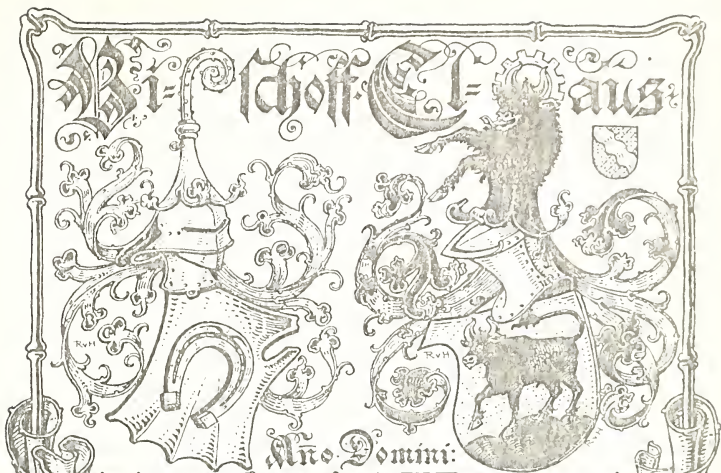 Bi= schoff. Cl= aus.
RvH
RvH
Ano. Domini: